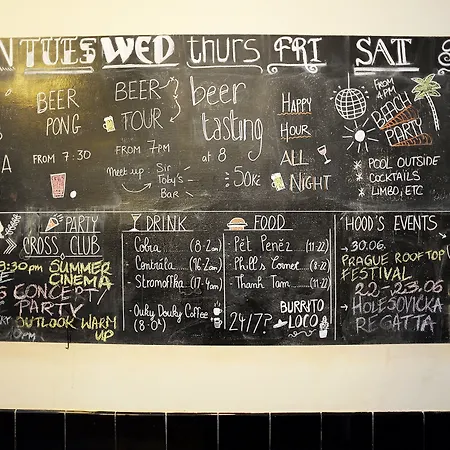 TUES WED thurs FRI SAT
BEER
PONG
FROM 7:30
BEER
TOUR
FROM 7PM
Meet up: Sir
Toby's
Bar
beer
tasting
at 8
50Kč
HAPPY
HOUR
ALL
NIGHT
FROM
4PM
BEACH
PARTY
* POOL OUTSIDE
* COCKTAILS
* LIMBO, ETC
PARTY
CROSS CLUB
8:30pm SUMMER
CINEMA
CONCERT/
PARTY
OUTLOOK WARM
UP
DRINK
Cobra (8-2am)
Centrála (16-2am)
Stromoffka (17-4am)
Ouky Douky Coffee
(8-0h)
FOOD
Pět Peněz (11-22)
Phill's Corner (8-22)
Thanh Tam (11-22)
24/7? BURRITO
LOCO
HOOD'S EVENTS
→ 30.06.
PRAGUE ROOFTOP
FESTIVAL
22-23.06
→ HOLEŠOVIČKA
REGATTA